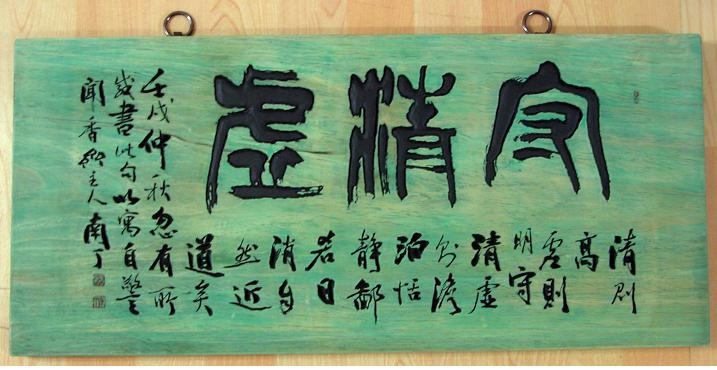 守清虛
清則
高
虛則
明守
清虛
則澹
泊恬
靜鄙
吝日
消自
然近
道矣
壬戌仲秋忽有所
感書此句以寓自警
聞香齋主人南丁